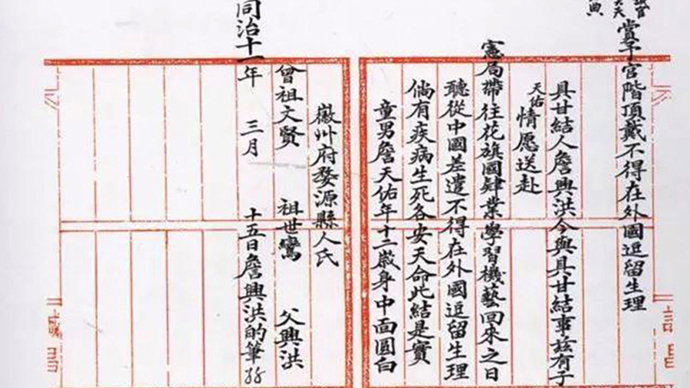 賞予官階頂戴不得在外國逗留生理
具甘結人詹興洪今與具甘結事兹有子
天佑情愿送赴
憲局帶往花旗國肄業學習機藝回來之日
聽從中國差遣不得在外國逗留生理
倘有疾病生死各安天命此結是實
童男詹天佑年十二歲身中面圓白
徽州府婺源縣人氏
曾祖文賢 祖世鸞 父興洪
同治十一年 三月 十五日詹興洪的筆